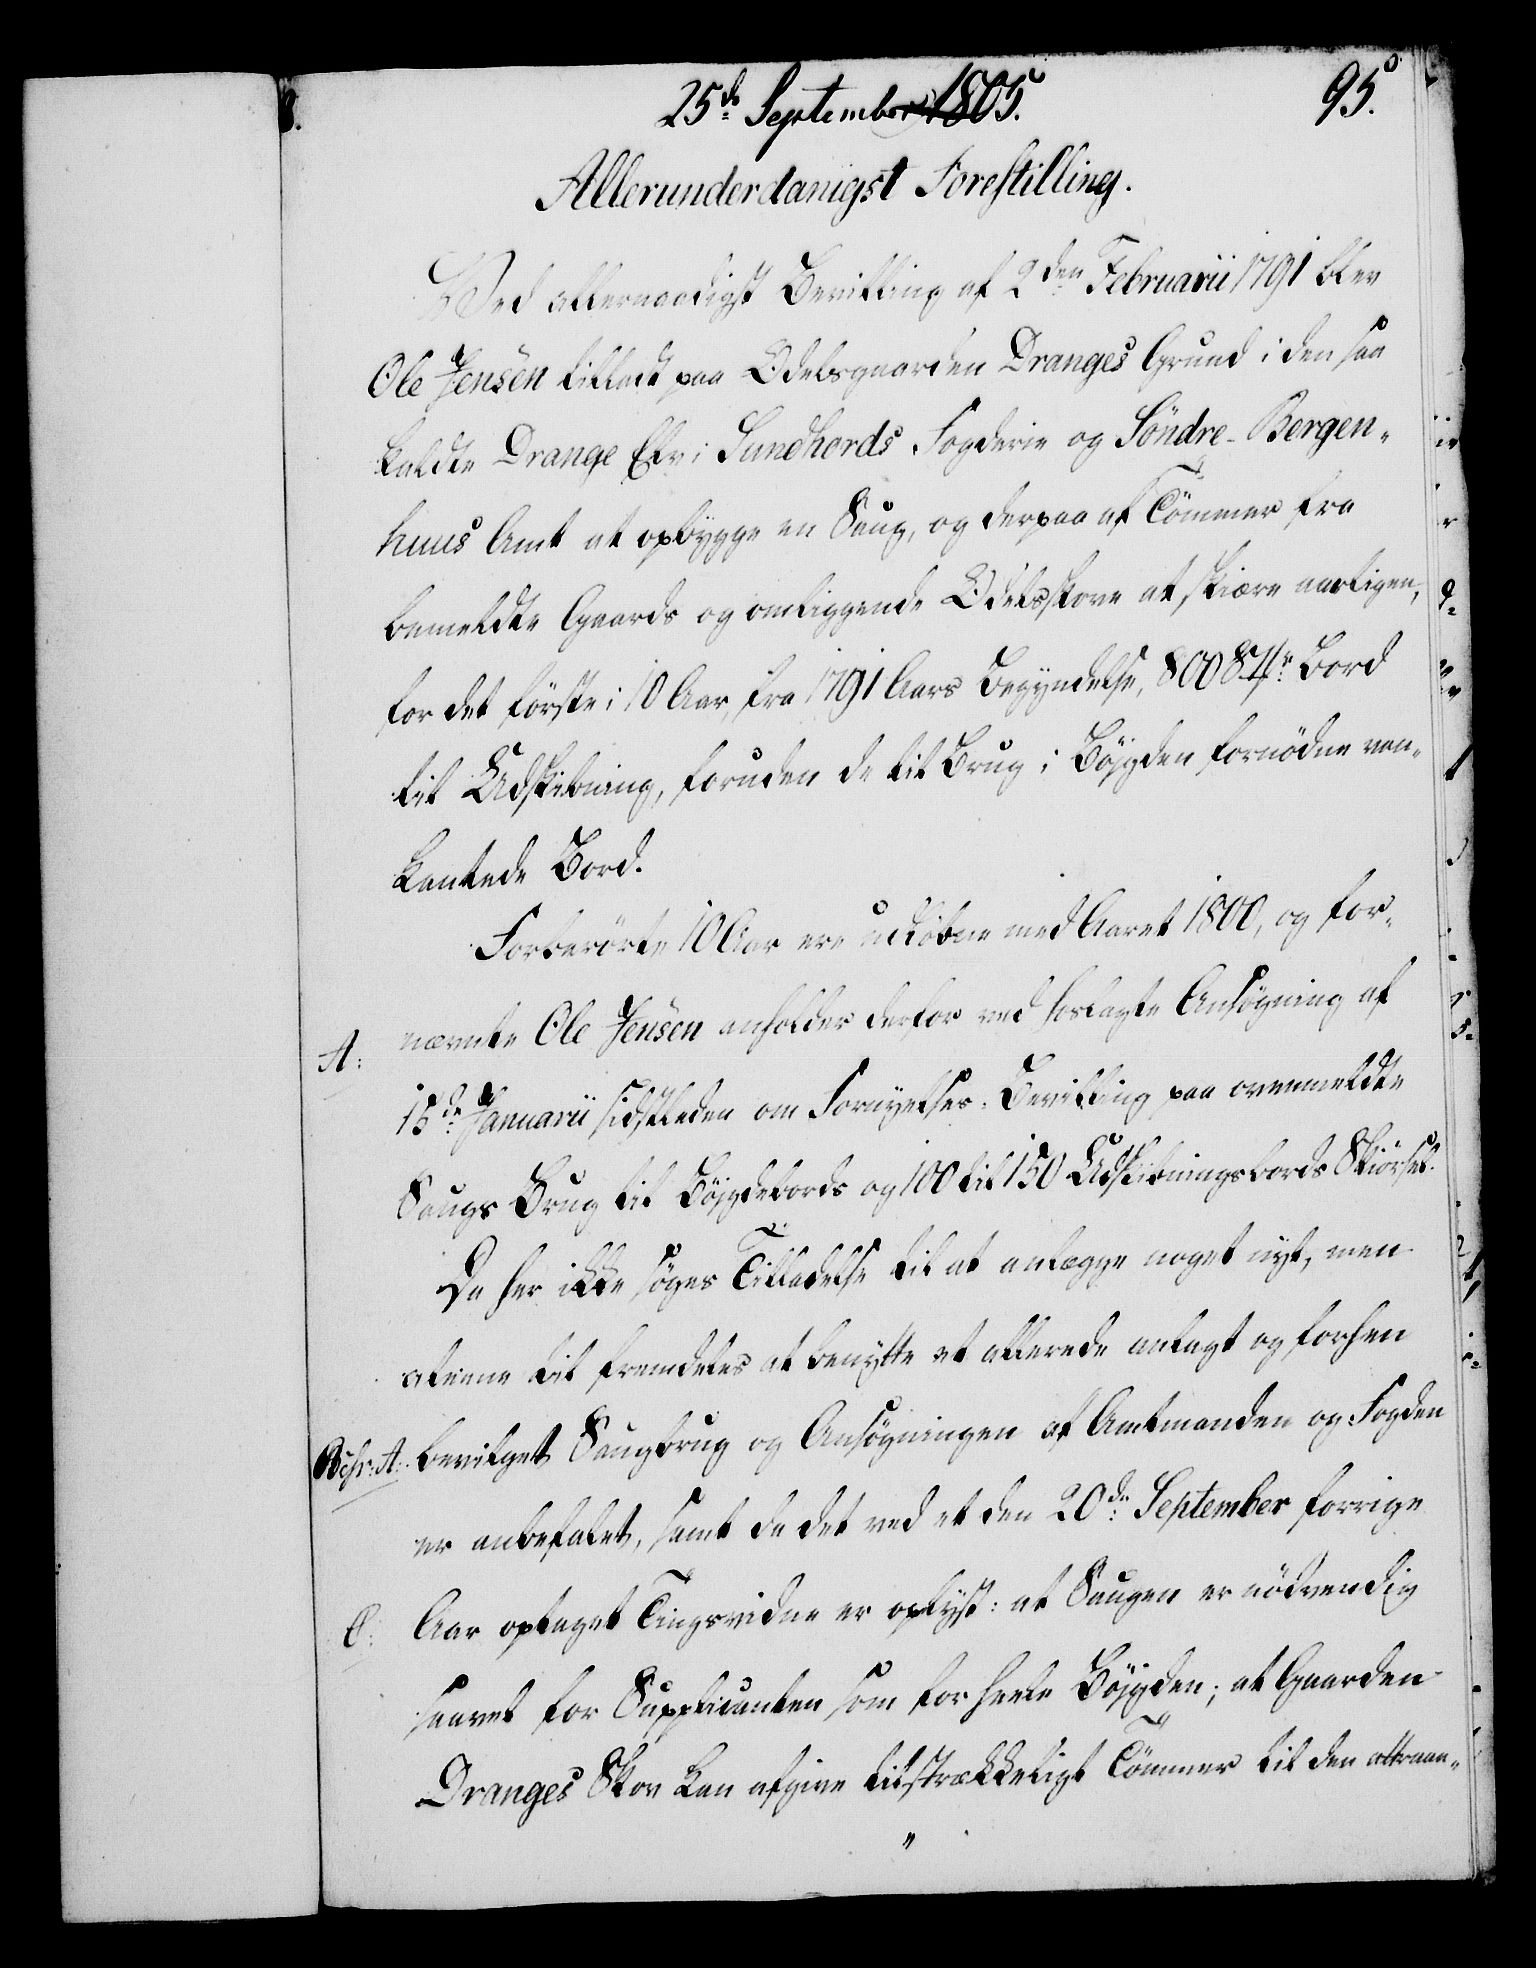 25de September 1805.
95.
Allerunderdanigst Forestilling.
Ved allernaadigst Bevilling af 2den Februarii 1791 blev
Ole Jensen tilladt paa Odelsgaarden Dranges Grund i den saa
kaldte Drange Elv i Sundhords Fogderie og Söndre-Bergen-
huus Amt at opbygge en Saug, og derpaa af Tömmer fra
bemeldte Gaards og omliggende Odelsskove at skiære aarligen,
for det förste i 10 Aar, fra 1791 Aars Begyndelse, 800 Stkr Bord
til Udskibning, foruden de til Brug i Böjgden fornödne van-
kantede Bord.
Forberörte 10 Aar ere udlöbne med Aaret 1800, og for-
A: nævnte Ole Jensen anholder derfor ved hoslagte Ansögning af
15de Januarii sidstleden om Fornyelses-Bevilling paa ovenmeldte
Saugs Brug til Böjgdebords og 100 til 150 Udskibningsbords Skiörsel.
Da her ikke söges Tilladelse til at anlægge noget nyt, men
alene til fremdeles at benytte et allerede anlagt og forhen
Bchr: A: bevilget Saugbrug og Ansögningen af Amtmanden og Fogden
er anbefalet, samt da det ved et den 20de September forrige
C: Aar optaget Tingsvidne er oplyst: at Saugen er nödvendig
saavel for Supplicanten som for heele Böjgden; at Gaarden
Dranges Skov kan afgive tilstrækkeligt Tömmer til den attraae-